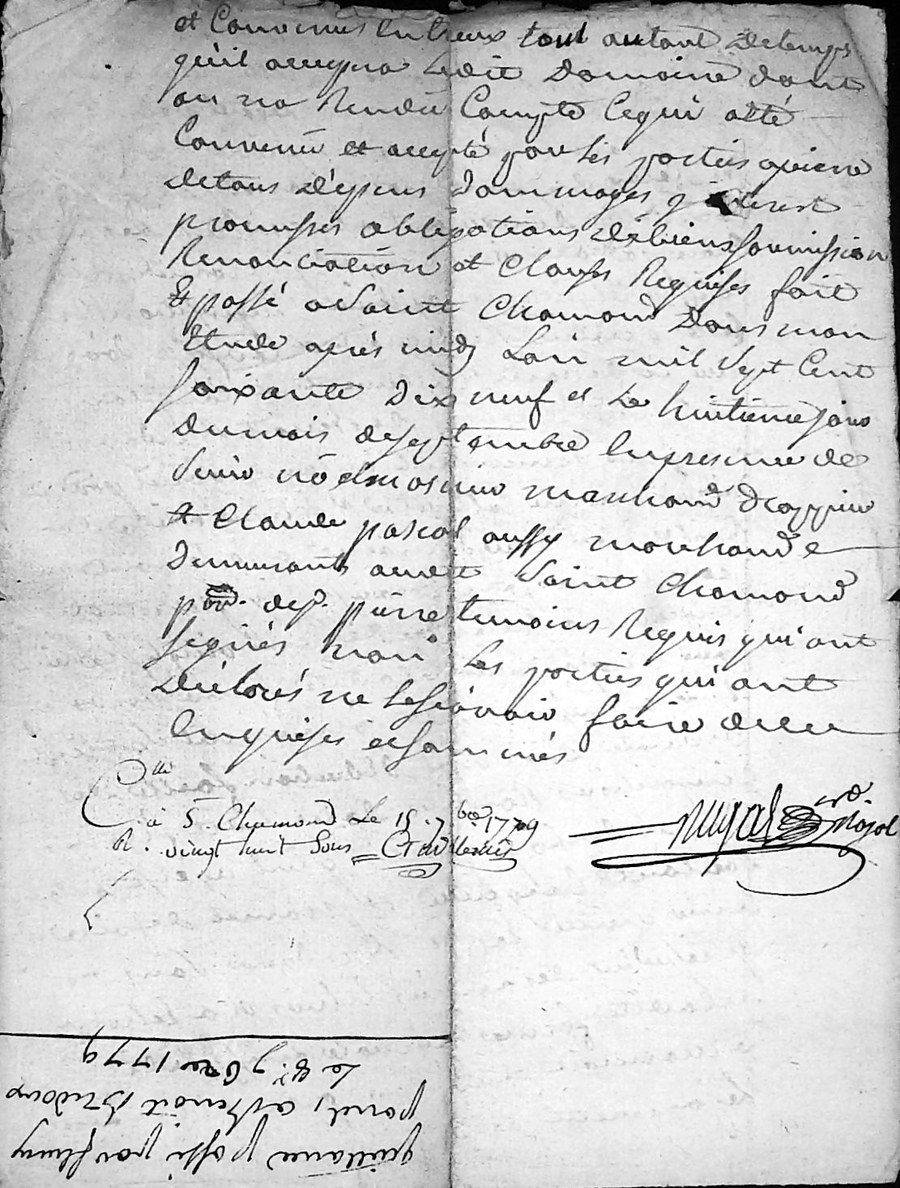 et convenus entreux tout autant de temps
qu'il occupera ledit Domaine dont
on na Rendu Compte Ce qui a été
Convenu et accepté par les parties a peine
de tous dépens dommages interest
promisses obligations de biens soumission
Renonciation et Clauses Requises fait
et passé a Saint Chamond Dans mon
Etude aprés midy Lan mil sept Cent
soixante Dix neuf et Le huitieme jour
du mois de septembre En presence de
Sieur marchand Drappier
et Claude pascal aussy marchand
Demeurants audit Saint Chamond
pierre temoins Requis qui ont
signés non Les parties qui ont
Déclarés ne le sçavoir faire de ce
Enquises et sommés
C.lle
à S.t Chamond Le 15. 7bre 1779
R. vingt huit Sous
quittance passé par fleury
a Benoit
Le 8.e 7bre 1779